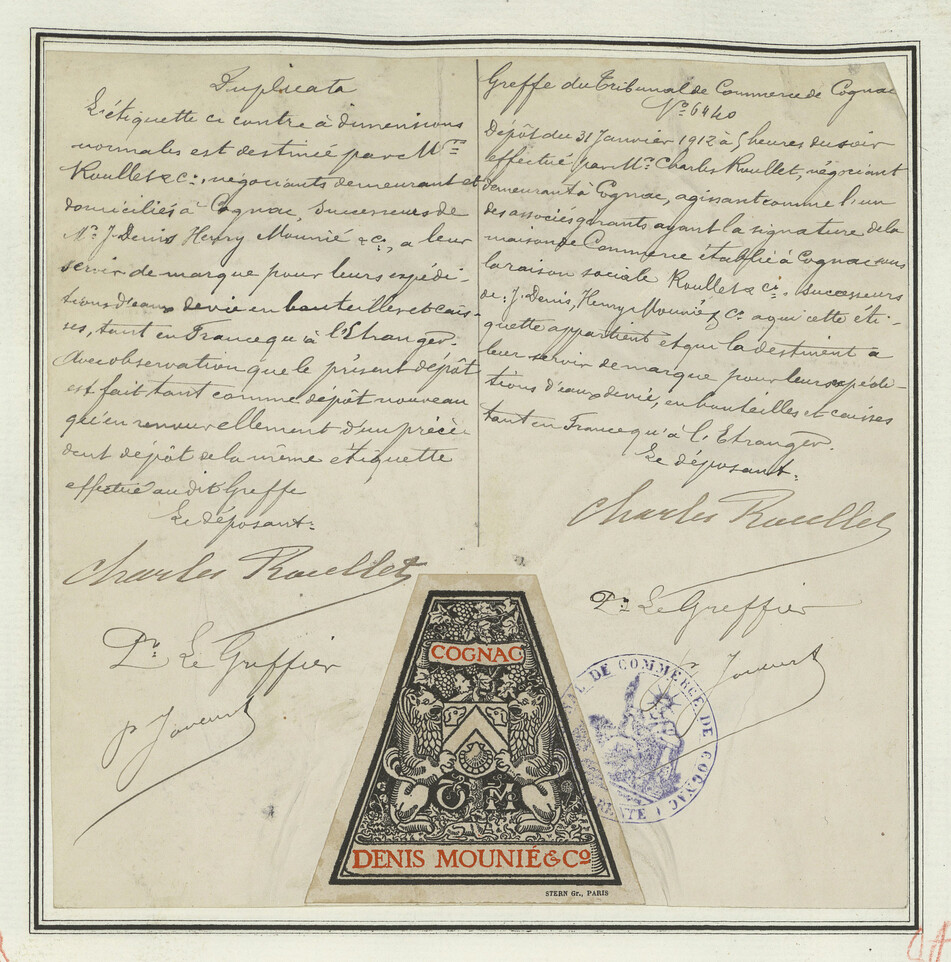 Duplicata
L'étiquette ci contre à dimensions
normales est destinée par MM
Roullet & Cie, négociants demeurant et
domiciliés à Cognac, Successeurs de
Mr J. Denis Henry Mounié & Cie, a leur
servir de marque pour leurs expédi-
tions d'eaux de vie en bouteilles et cais-
ses, tant en France qu'à l'Etranger.
Avec observation que le présent dépôt
est fait tant comme dépôt nouveau
qu'en renouvellement d'un précé-
dent dépôt de la même étiquette
effectué au dit Greffe
Le déposant:
Charles Roullet
Pr Le Greffier
Greffe du Tribunal de Commerce de Cognac
No 6440
Dépôt du 31 Janvier 1912 à 5 heures du soir
effectué par Mr Charles Roullet, négociant
demeurant à Cognac, agissant comme l'un
des associés gérants ayant la signature de la
maison de Commerce établie à Cognac sous
la raison sociale Roullet & Cie, Successeurs
de: J. Denis, Henry Mounié & Co a qui cette éti-
quette appartient et qui la destinent a
leur servir de marque pour leurs expédi-
tions d'eaux de vie, en bouteilles et caisses
tant en France qu'à l'Etranger.
Le déposant.
Charles Roullet
Pr Le Greffier
COGNAC
D M
DENIS MOUNIÉ & Co
STERN Gr., PARIS
DE COMMERCE DE COGNAC